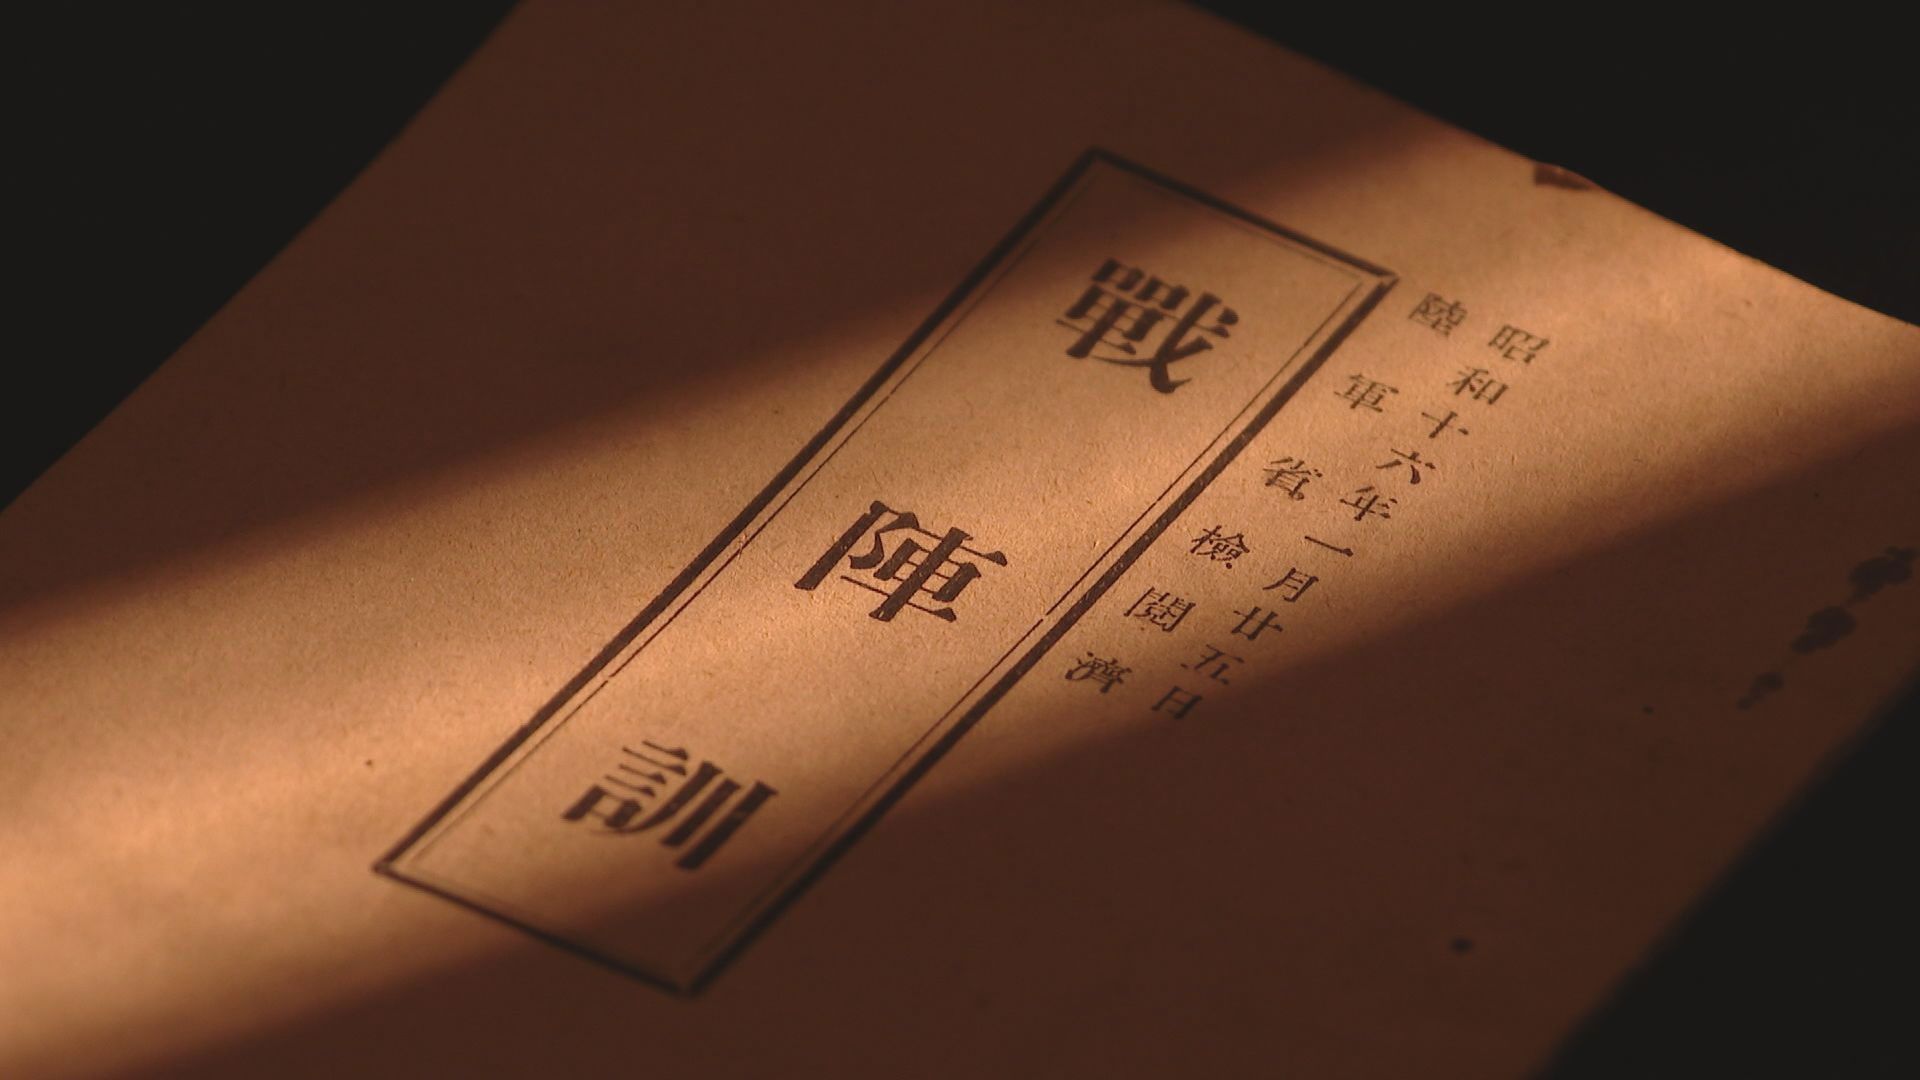 昭和十六年一月廿五日
陸軍省檢閲濟
戰陣訓